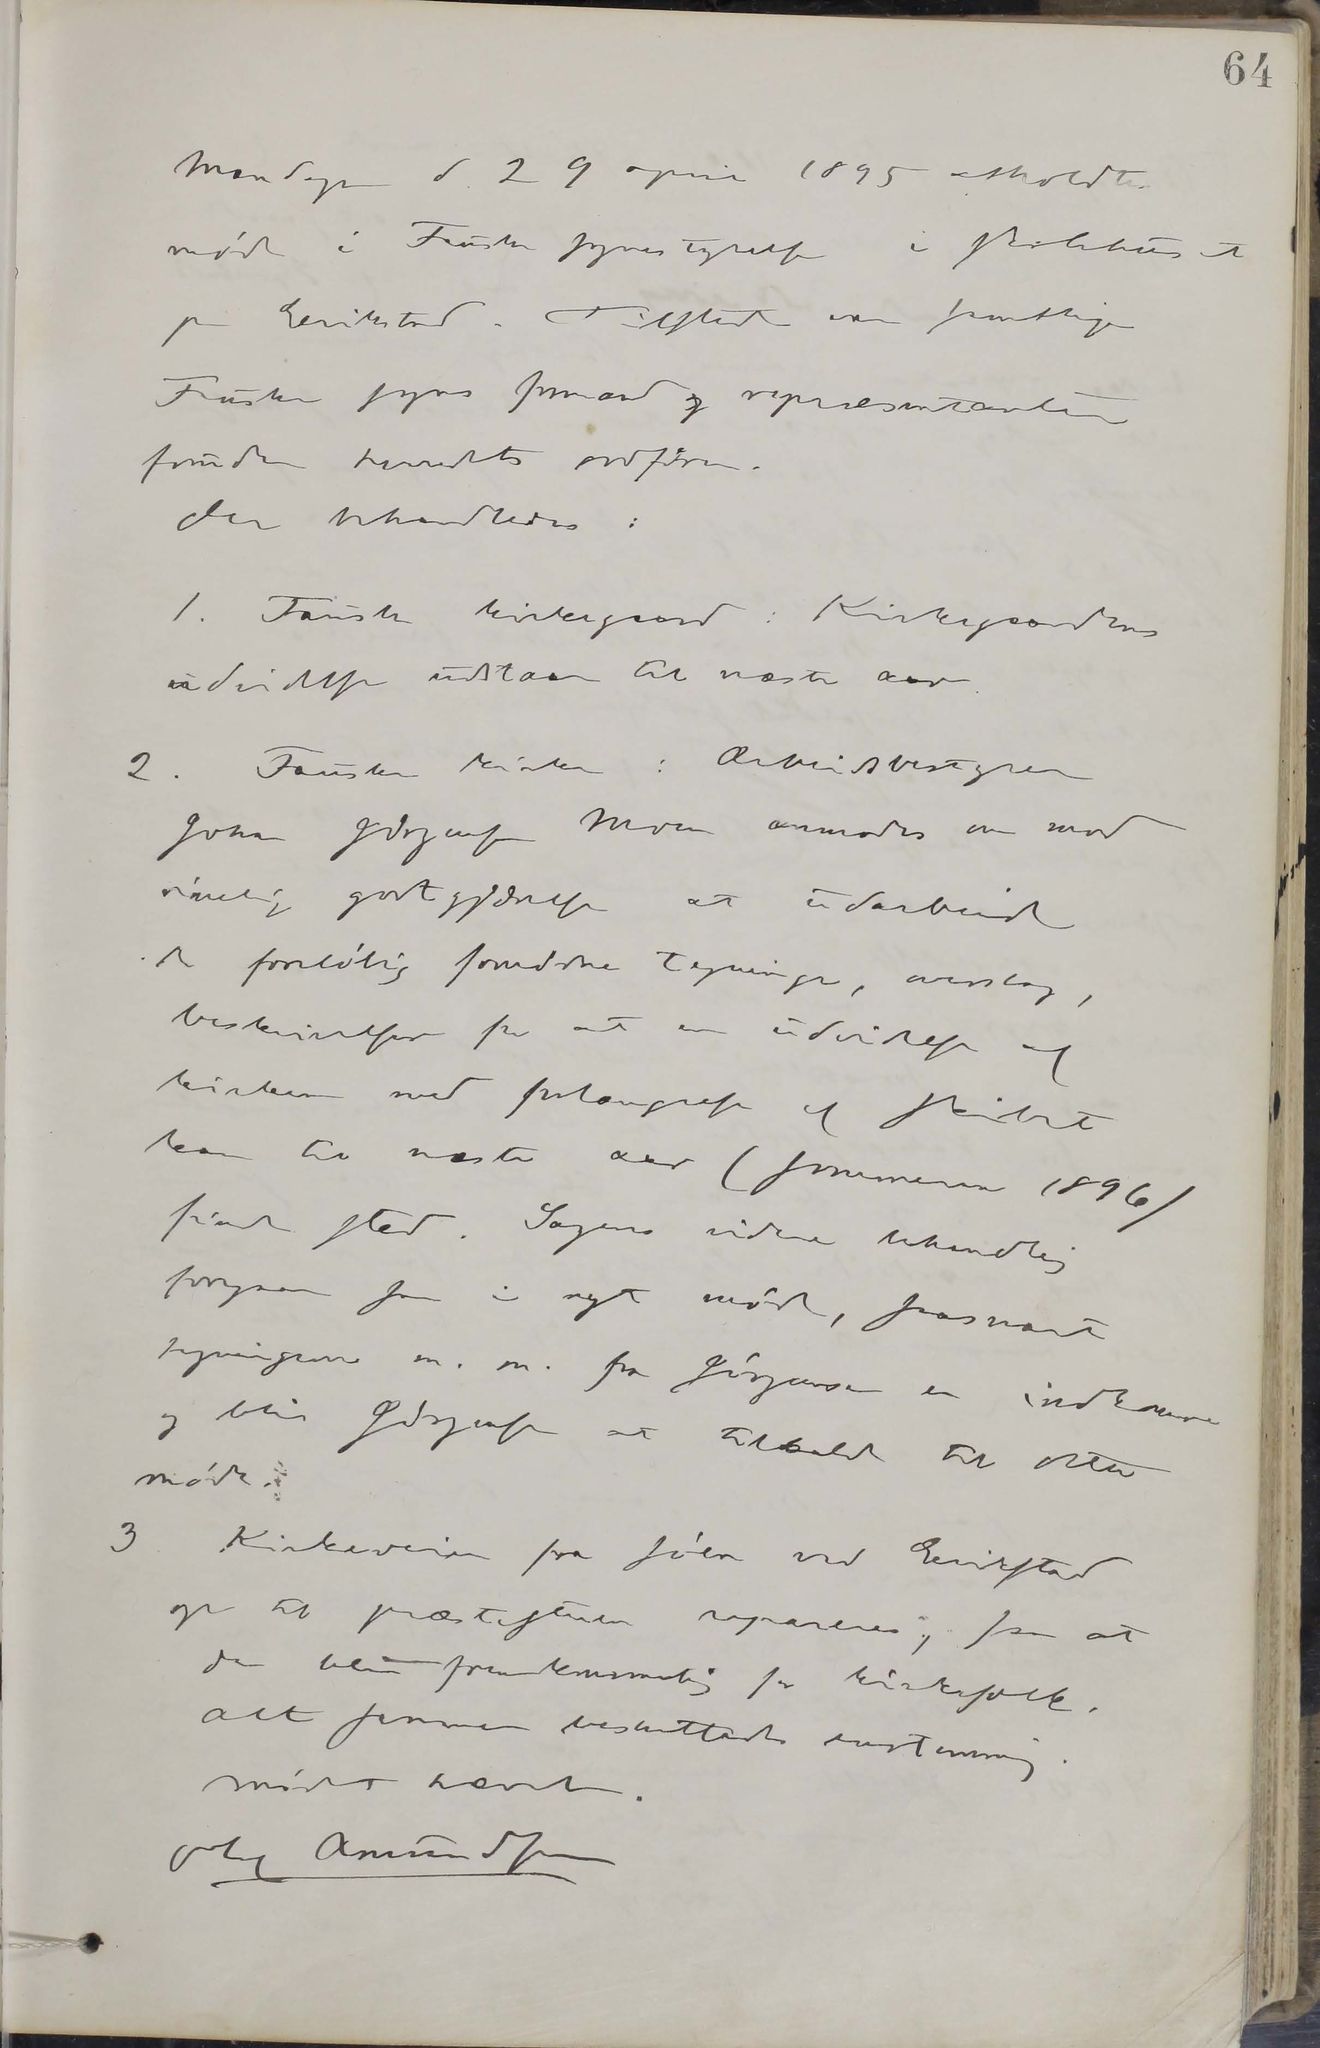 64
Mandagen d. 29 april 1895 afholdtes
møde i Fauske sognestyrelse i skolehuset
på Erikstad. Tilstede var samtlige
Fauske sogns formænd og repræsentanter
foruden herredets ordfører.
Der behandledes :
1. Fauske kirkegaard : Kirkegaardens
udvidelse udstaar til næste aar
2. Fauske kirke : Arbeidsbestyrer
Johan Jørgensen Moen anmodes om mod
rimelig godtgjørelse at udarbeide
de foreløbig fornødne tegninger, overslag,
beskrivelser for at en udvidelse af
kirken med forlængelse af skibet
kan til næste aar (sommeren 1896/
finde sted. Sagens videre behandling
foregaar saa i nyt møde, saasnart
tegningerne m. m. fra Jørgensen er indkomne
og blir Jørgensen at tilkalde til dette
møde.
3 Kirkeveien fra sjøen ved Erikstad
op til præstestuen repareres, saa at
den blir fremkommelig for kirkefolk.
Alt sammen besluttedes enstemmig.
Mødet hævet.
Amundsen